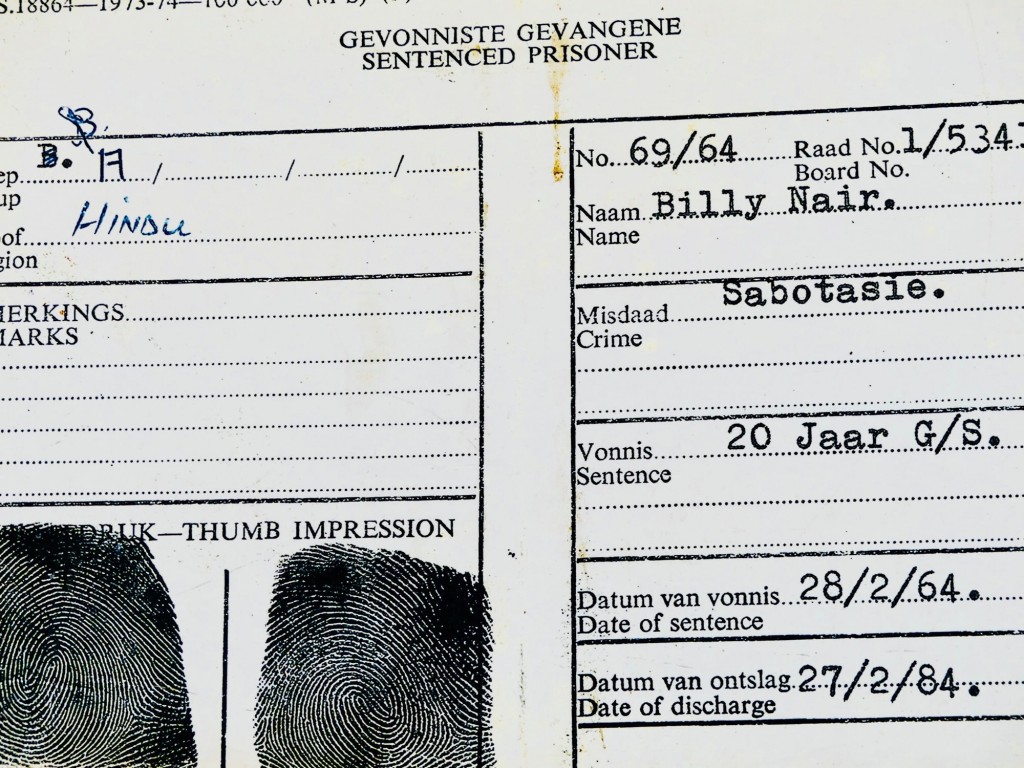 S.18864—1973-74—100 000
GEVONNISTE GEVANGENE
SENTENCED PRISONER
B.
B. A / / /
ep
up
HINDU
of
gion
MERKINGS
MARKS
DRUK—THUMB IMPRESSION
No. 69/64 Raad No. 1/5341
Board No.
Naam Billy Nair.
Name
Sabotasie.
Misdaad
Crime
Vonnis 20 Jaar G/S.
Sentence
Datum van vonnis 28/2/64.
Date of sentence
Datum van ontslag 27/2/84.
Date of discharge